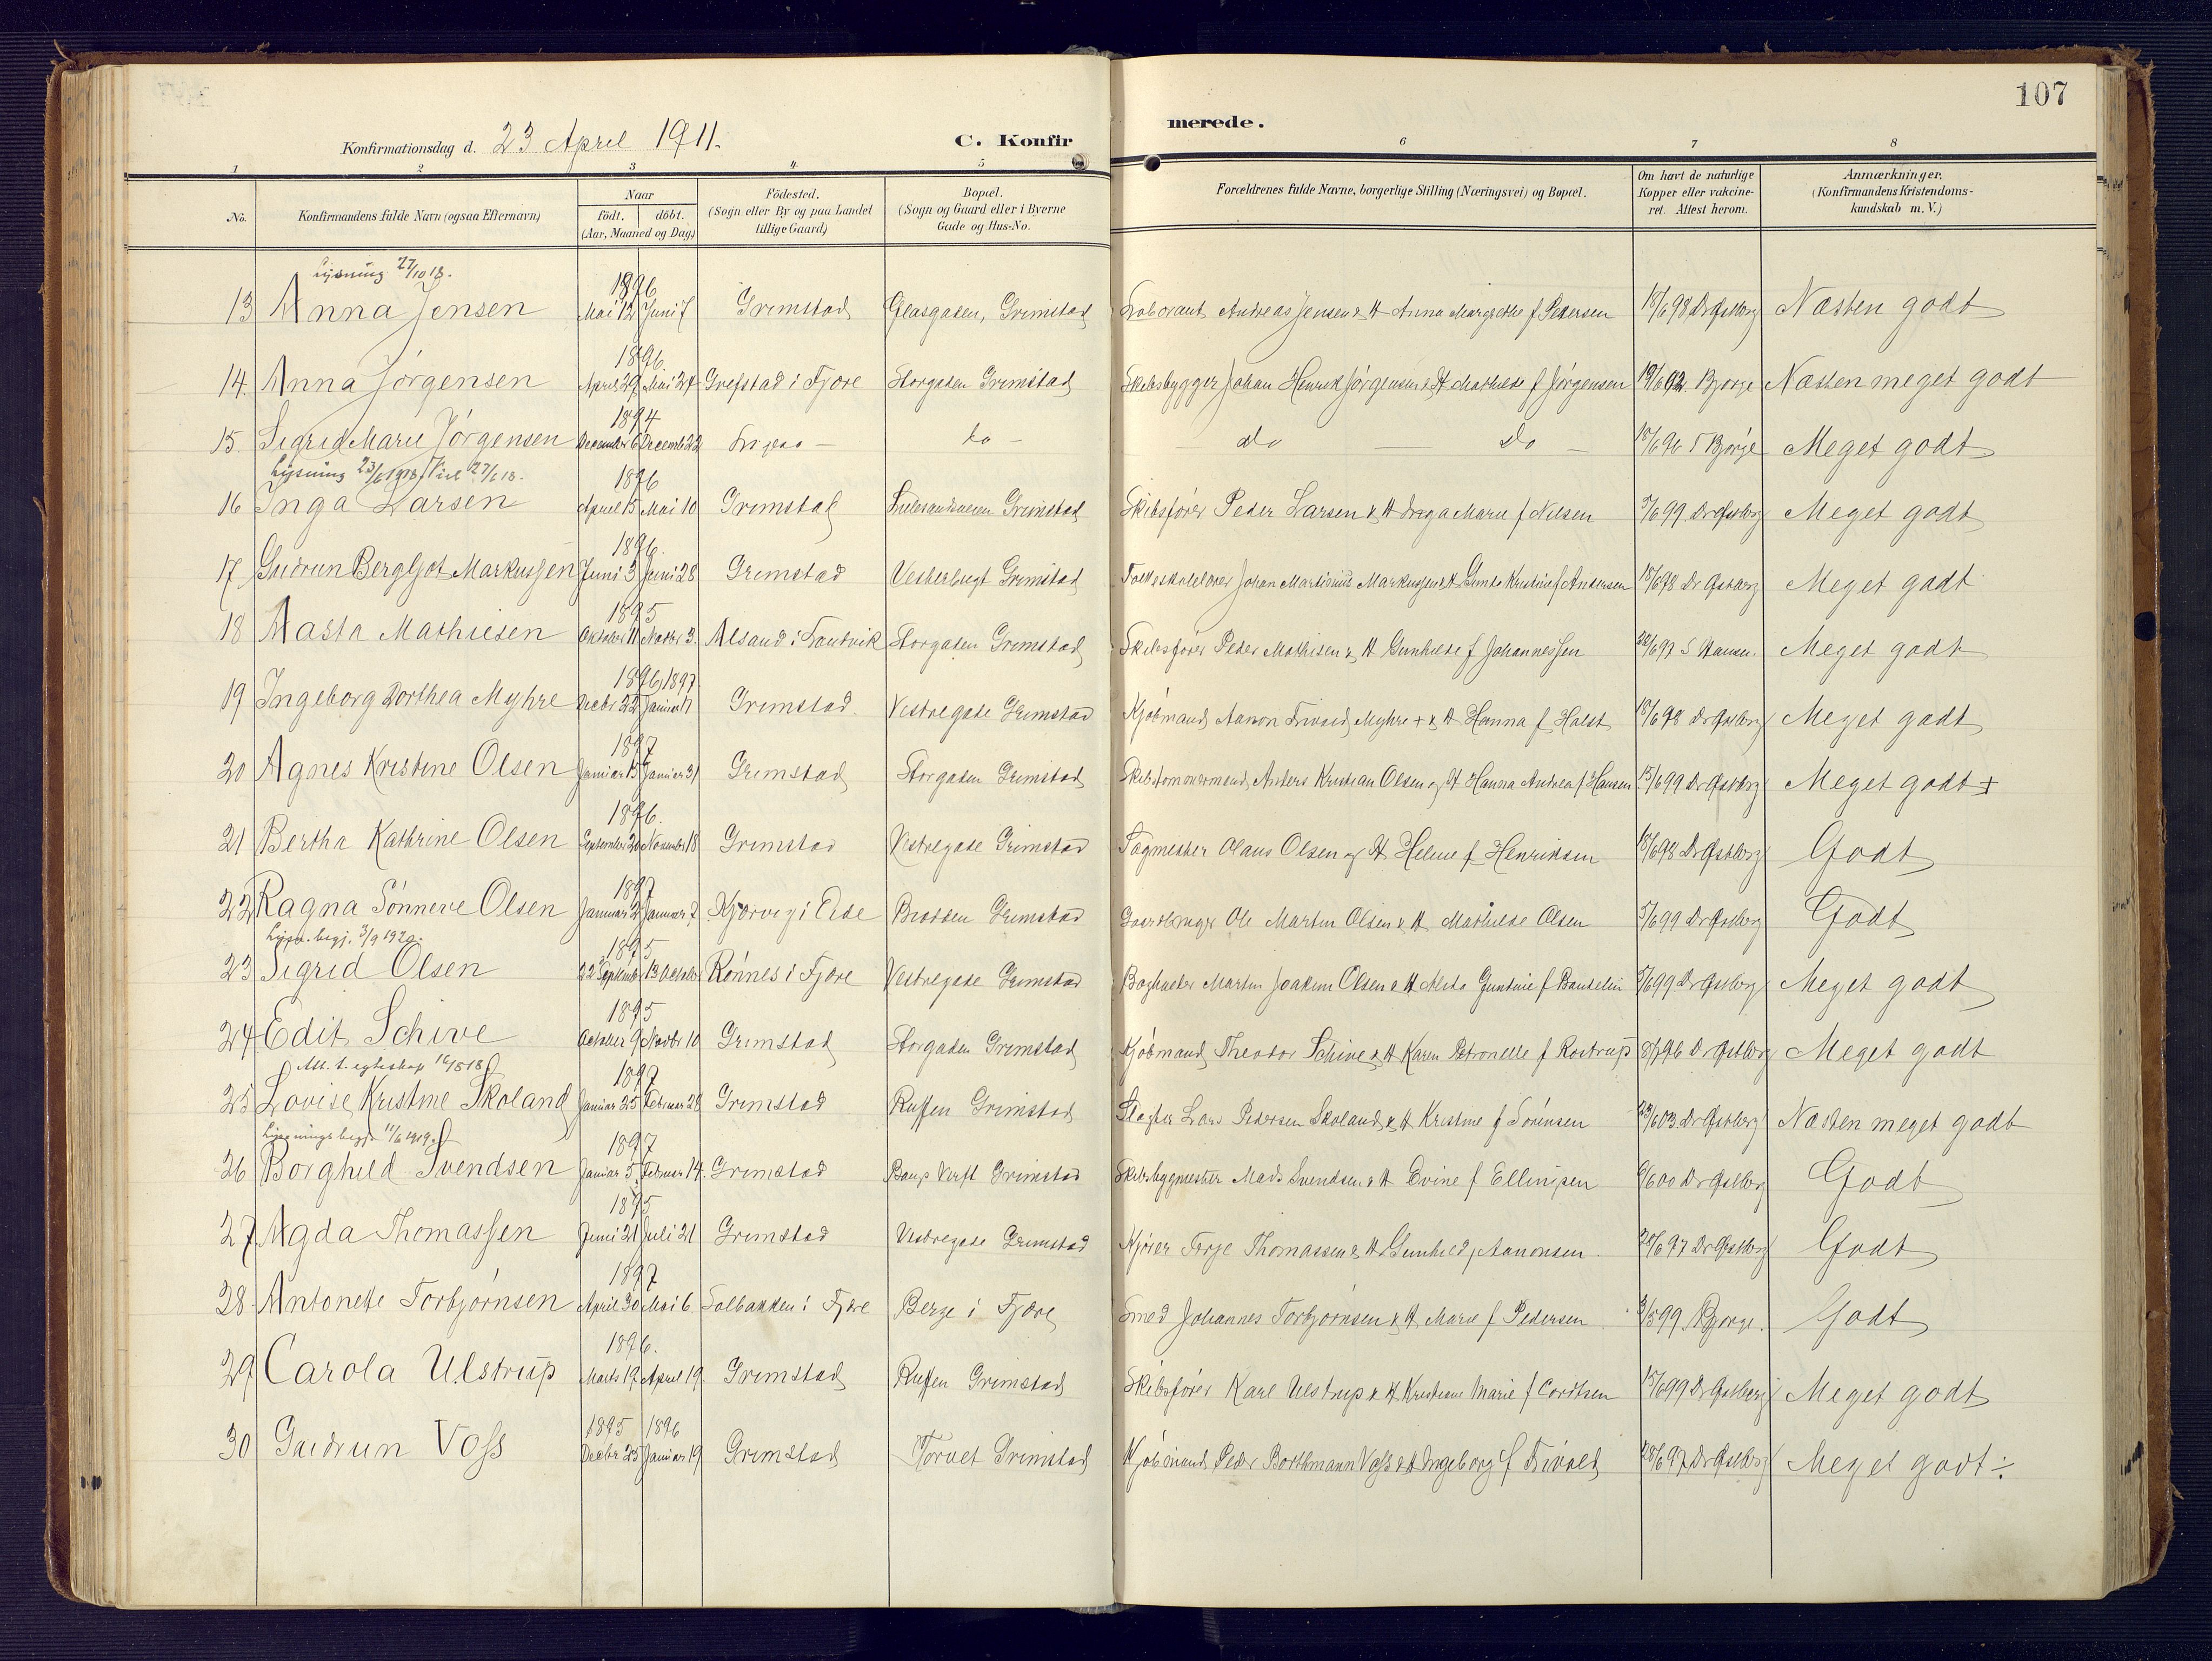 107
Konfirmationsdag d. 23 April 1911.
C. Konfirmerede.
1 2 3 4 5 6 7 8
No.
Konfirmandens fulde Navn (ogsaa Efternavn)
Naar
födt. döbt.
(Aar, Maaned og Dag)
Födested.
(Sogn eller By og paa Landet
tillige Gaard)
Bopæl.
(Sogn og Gaard eller i Byerne
Gade og Hus-No.
Forældrenes fulde Navne, borgerlige Stilling (Næringsvei) og Bopæl.
Om havt de naturlige
Kopper eller vakcine-
ret. Attest herom.
Anmærkninger.
(Konfirmandens Kristendoms-
kundskab m. V.)
Lysning 27/10 18.
1896
13 Anna Jensen Mai 12 Juni 7 Grimstad Grimstad Andreas Jensen & H Anna Margrethe f Pedersen 18/6 98 Dr Østberg Næsten godt
1896.
14. Anna Jörgensen April 29 Mai 24 Grefstad i Fjære Storgaden Grimstad Skibsbygger Johan Henrik Jörgensen & H Mathilde f Jörgensen Næsten meget godt
1894
15. Sigrid Marie Jörgensen December 6 Decemb 22 do do do Meget godt
Lysning 23/6 1918, Viet 27/6 18.
1896
16 Inga Larsen April 15 Mai 10 Grimstad Lillesandsveien Grimstad Skibsförer Peder Larsen & H Inga Marie f Nilsen 5/6 99. Dr Østberg Meget godt
1896.
17 Gudrun Bergljot Markussen Juni 3 Juni 28 Grimstad Vesterbugt Grimstad Folkeskolelærer Johan Martinius Markussen & H Kristine f Andersen 18/6 98 Dr Østberg Meget godt
1895
18 Aasta Mathiesen Oktober 11 Novbr 3. Alsand i Landvik Storgaden Grimstad Skibsförer Peder Mathisen & H Gunhilde f Johannessen Meget godt
1896, 1897
19 Ingeborg Dorthea Myhre Decbr 22 Januar 17 Grimstad Vestregade Grimstad Kjöbmand Aanon Myhre + & H Hanna f Holst 18/6 98 Dr Østberg Meget godt
1897
20 Agnes Kristine Olsen Januar 15 Januar 31 Grimstad Storgaden Grimstad Skibstömmermand Anders Kristian Olsen og H Hanna Andrea f Hansen 15/6 99 Dr Østberg Meget godt +
1896.
21 Bertha Kathrine Olsen September 20 November 18 Grimstad Vestregade Grimstad Olaus Olsen og H Helene f Henriksen 18/6 98 Dr Østberg Godt
1897
22 Ragna Sönneve Olsen Januar 2 Januar 7 i Eide Grimstad Ole Martin Olsen & H Mathilde Olsen 5/6 99 Dr Østberg Godt
Lysn. begj. 3/9 1920.
1895
23 Sigrid Olsen 22 Septemb 13 October Rönnes i Fjære Vestregade Grimstad Martin Joakim Olsen & H 5/6 99 Dr Østberg Meget godt
1895
24 Edit Schive October 9 Novbr 10 Grimstad Storgaden Grimstad Kjöbmand Theodor Schive & H Karen Petronelle f Rostrup Dr Østberg Meget godt
Att. t. egteskap 16/5 18
1897
25 Lovise Kristine Skoland Januar 25 Februar 28 Grimstad Grimstad Slagter Lars Pedersen Skoland & H Kristine f Sörensen 23/6 03 Dr Østberg Næsten meget godt
Lysnings begj. 11/6 1919.
1897
26 Borghild Svendsen Januar 5. Februar 14. Grimstad Verft Grimstad Skibsbygmester Mads Svendsen & H Evine f Ellingsen 6/6 00 Dr Østberg Godt
1895
27 Agda Thomassen Juni 21 Juli 21 Grimstad Vestregade Grimstad Kjörer Terje Thomassen & H Gunhild f Aanonsen 28/6 97 Dr Østberg Godt
1897
28. Antonette Torbjörnsen April 30 Mai 6. Solbakken i Fjære Berge i Fjære Smed Johannes Torbjörnsen & H Marie f Pedersen Godt
1896.
29 Carola Ulstrup Marts 19 April 19. Grimstad Grimstad Skibsförer Karl Ulstrup & H Kristiane Marie f Cordtsen 15/6 99 Dr Østberg Meget godt
1895 1896
30 Gudrun Voss Decbr 25 Januar 19 Grimstad Torvet Grimstad Kjöbmand Peder Voss & H Ingeborg f 28/6 97 Dr Østberg Meget godt ÷